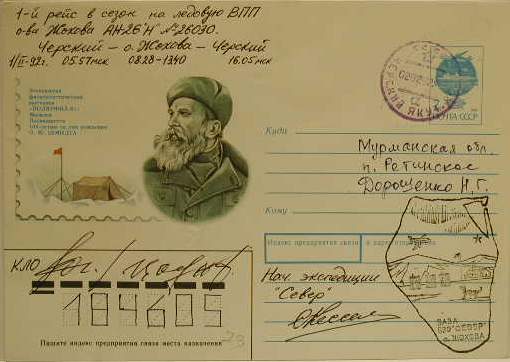 1-й рейс в сезон на ледовую ВПП
о-ва Жохова АН-26"Н" №26030.
Черский – о. Жохова – Черский
1/II-92г. 05.57мск 0828-1340 16.05мск
Всесоюзная
филателистическая
выставка
«ПОЛЯРФИЛ-91»
Посвящается
100-летию со дня рождения
О. Ю. ШМИДТА
ПОЧТА СССР
ЧЕРСКИЙ ЯКУТ.
Куда
Мурманская обл.
п. Ретинское
Дорощенко Н.Г.
Кому
Индекс предприятия связи и адрес отправителя
КЛО
Нач. экспедиции
"Север"
184605
Пишите индекс предприятия связи места назначения
73
БАЗА
"СЕВЕР"
о. ЖОХОВА